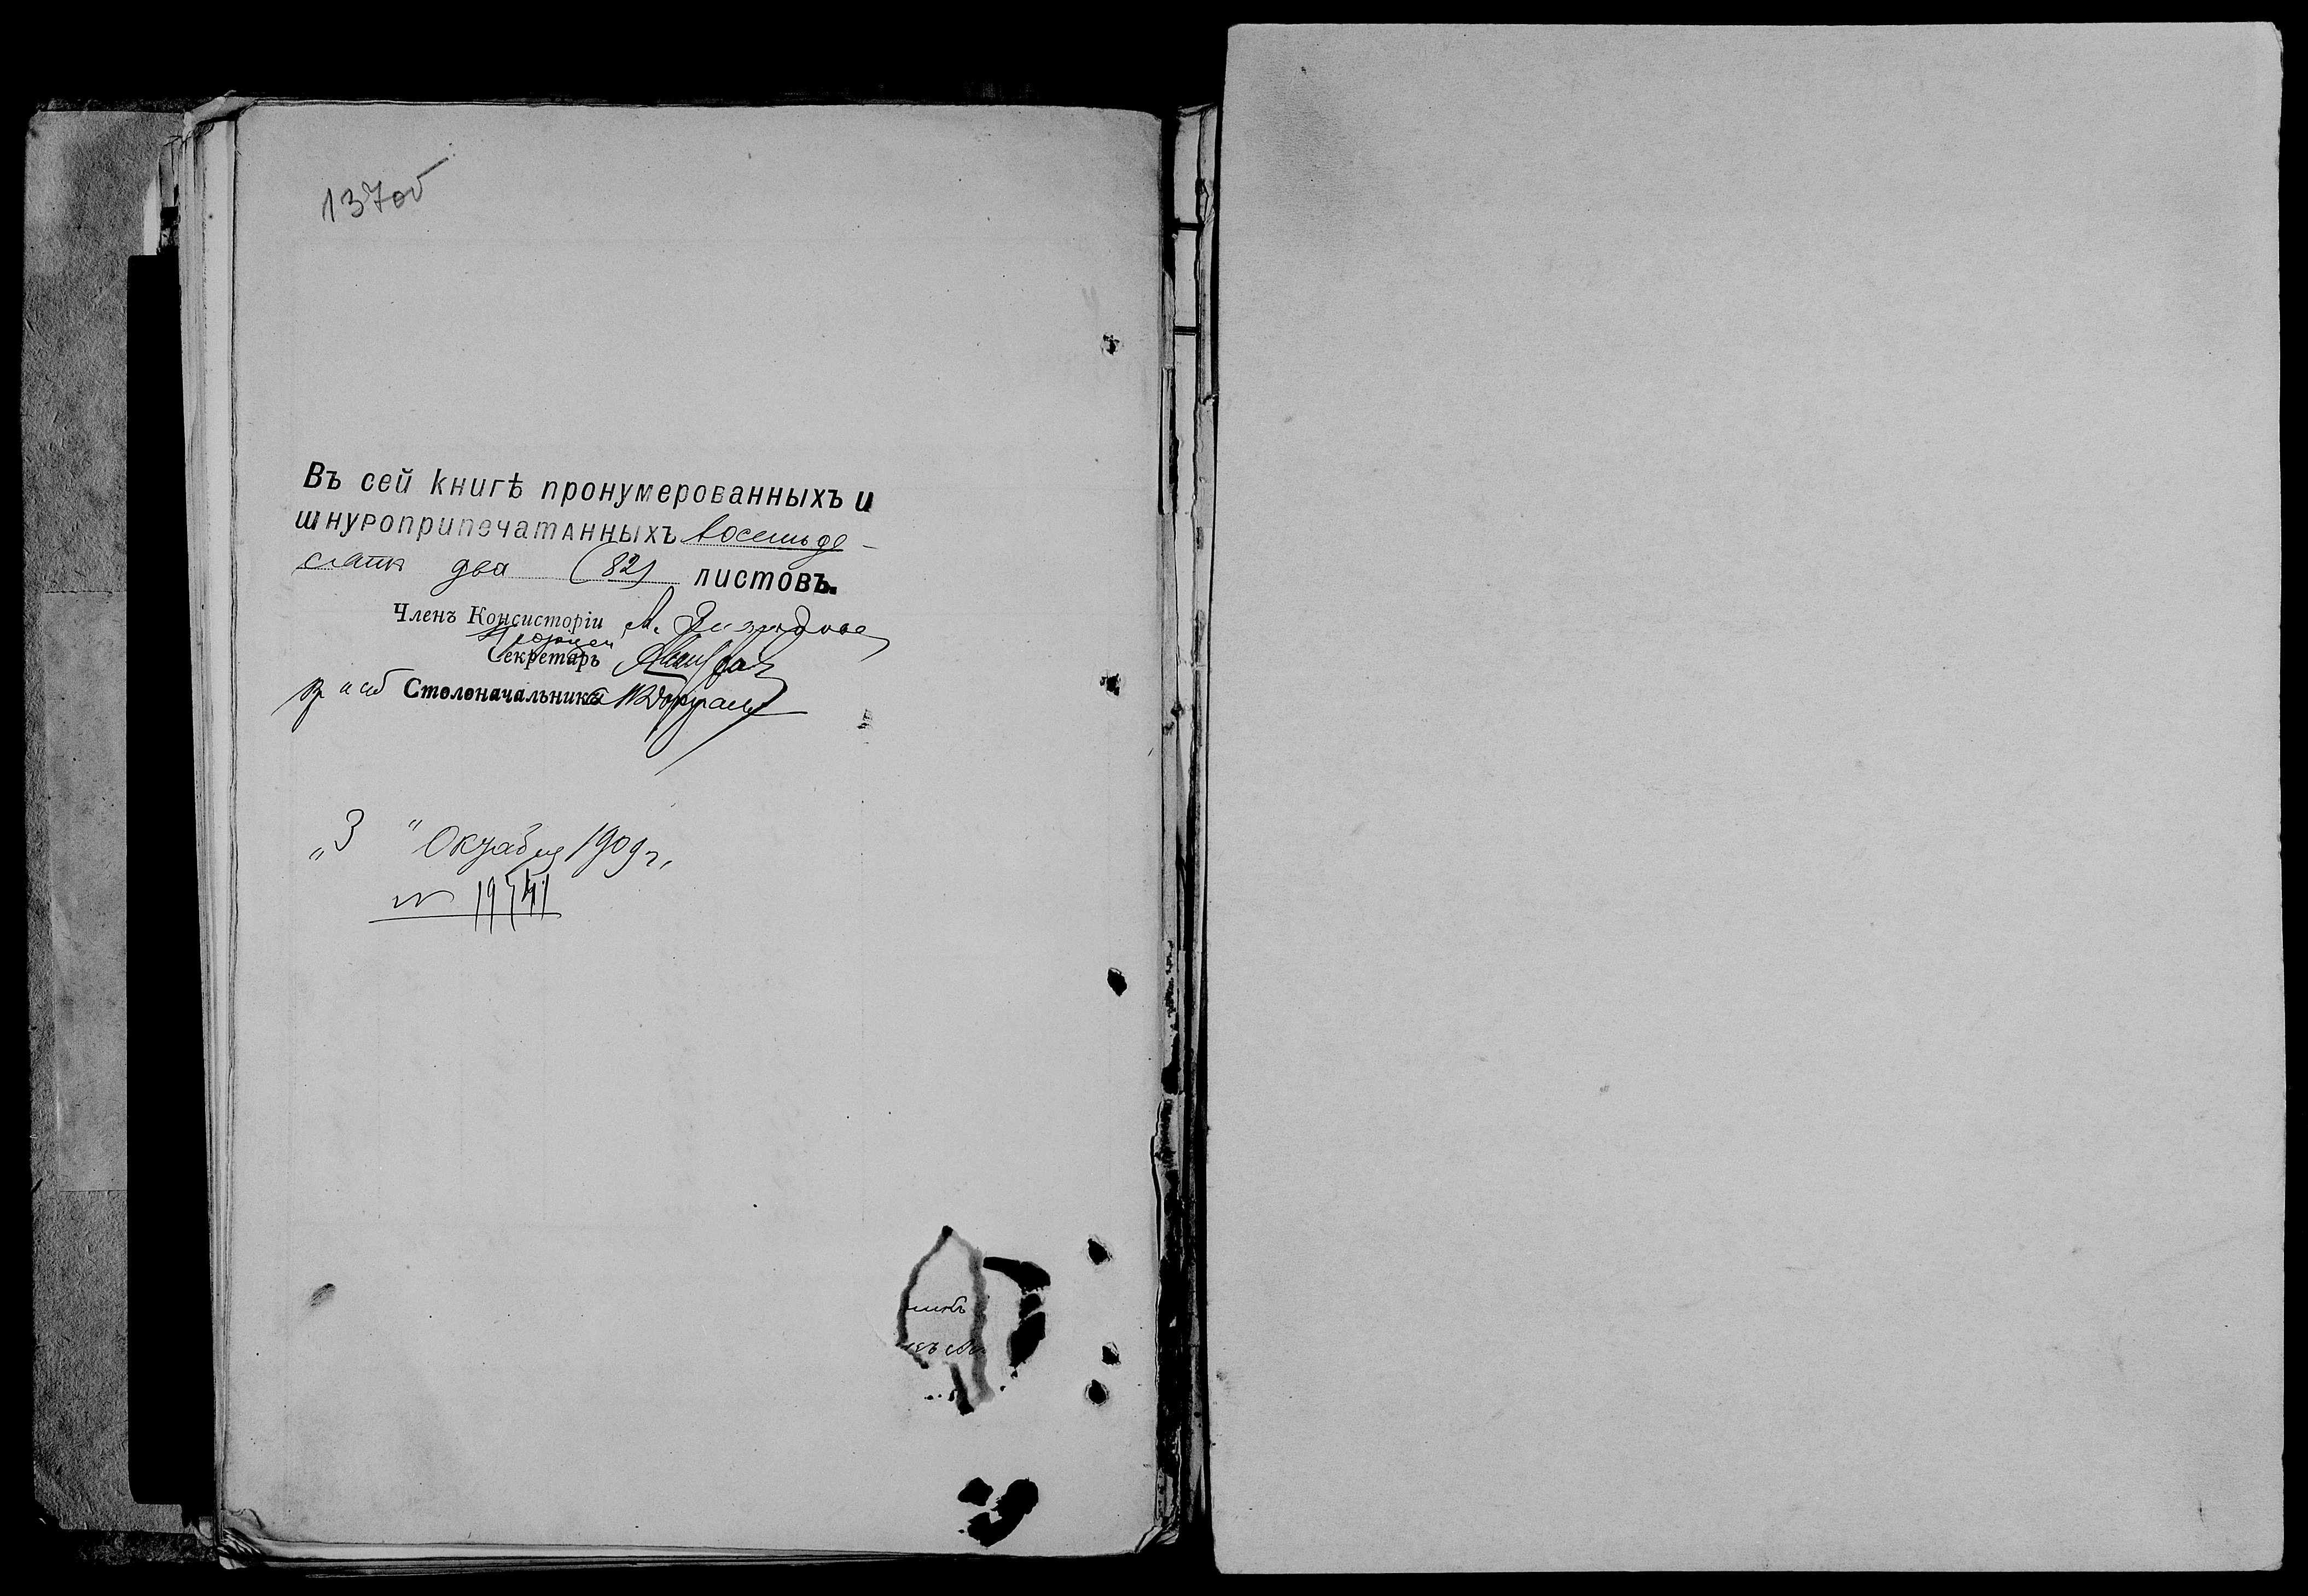 137об
Въ сей книгѣ пронумерованныхъ и
шнуроприпечатанныхъ восемьде-
сятъ два (82) листовъ.
Членъ Консисторіи
Секретарь
Столоначальника
„3" Октября 1909 г.
№ 19741